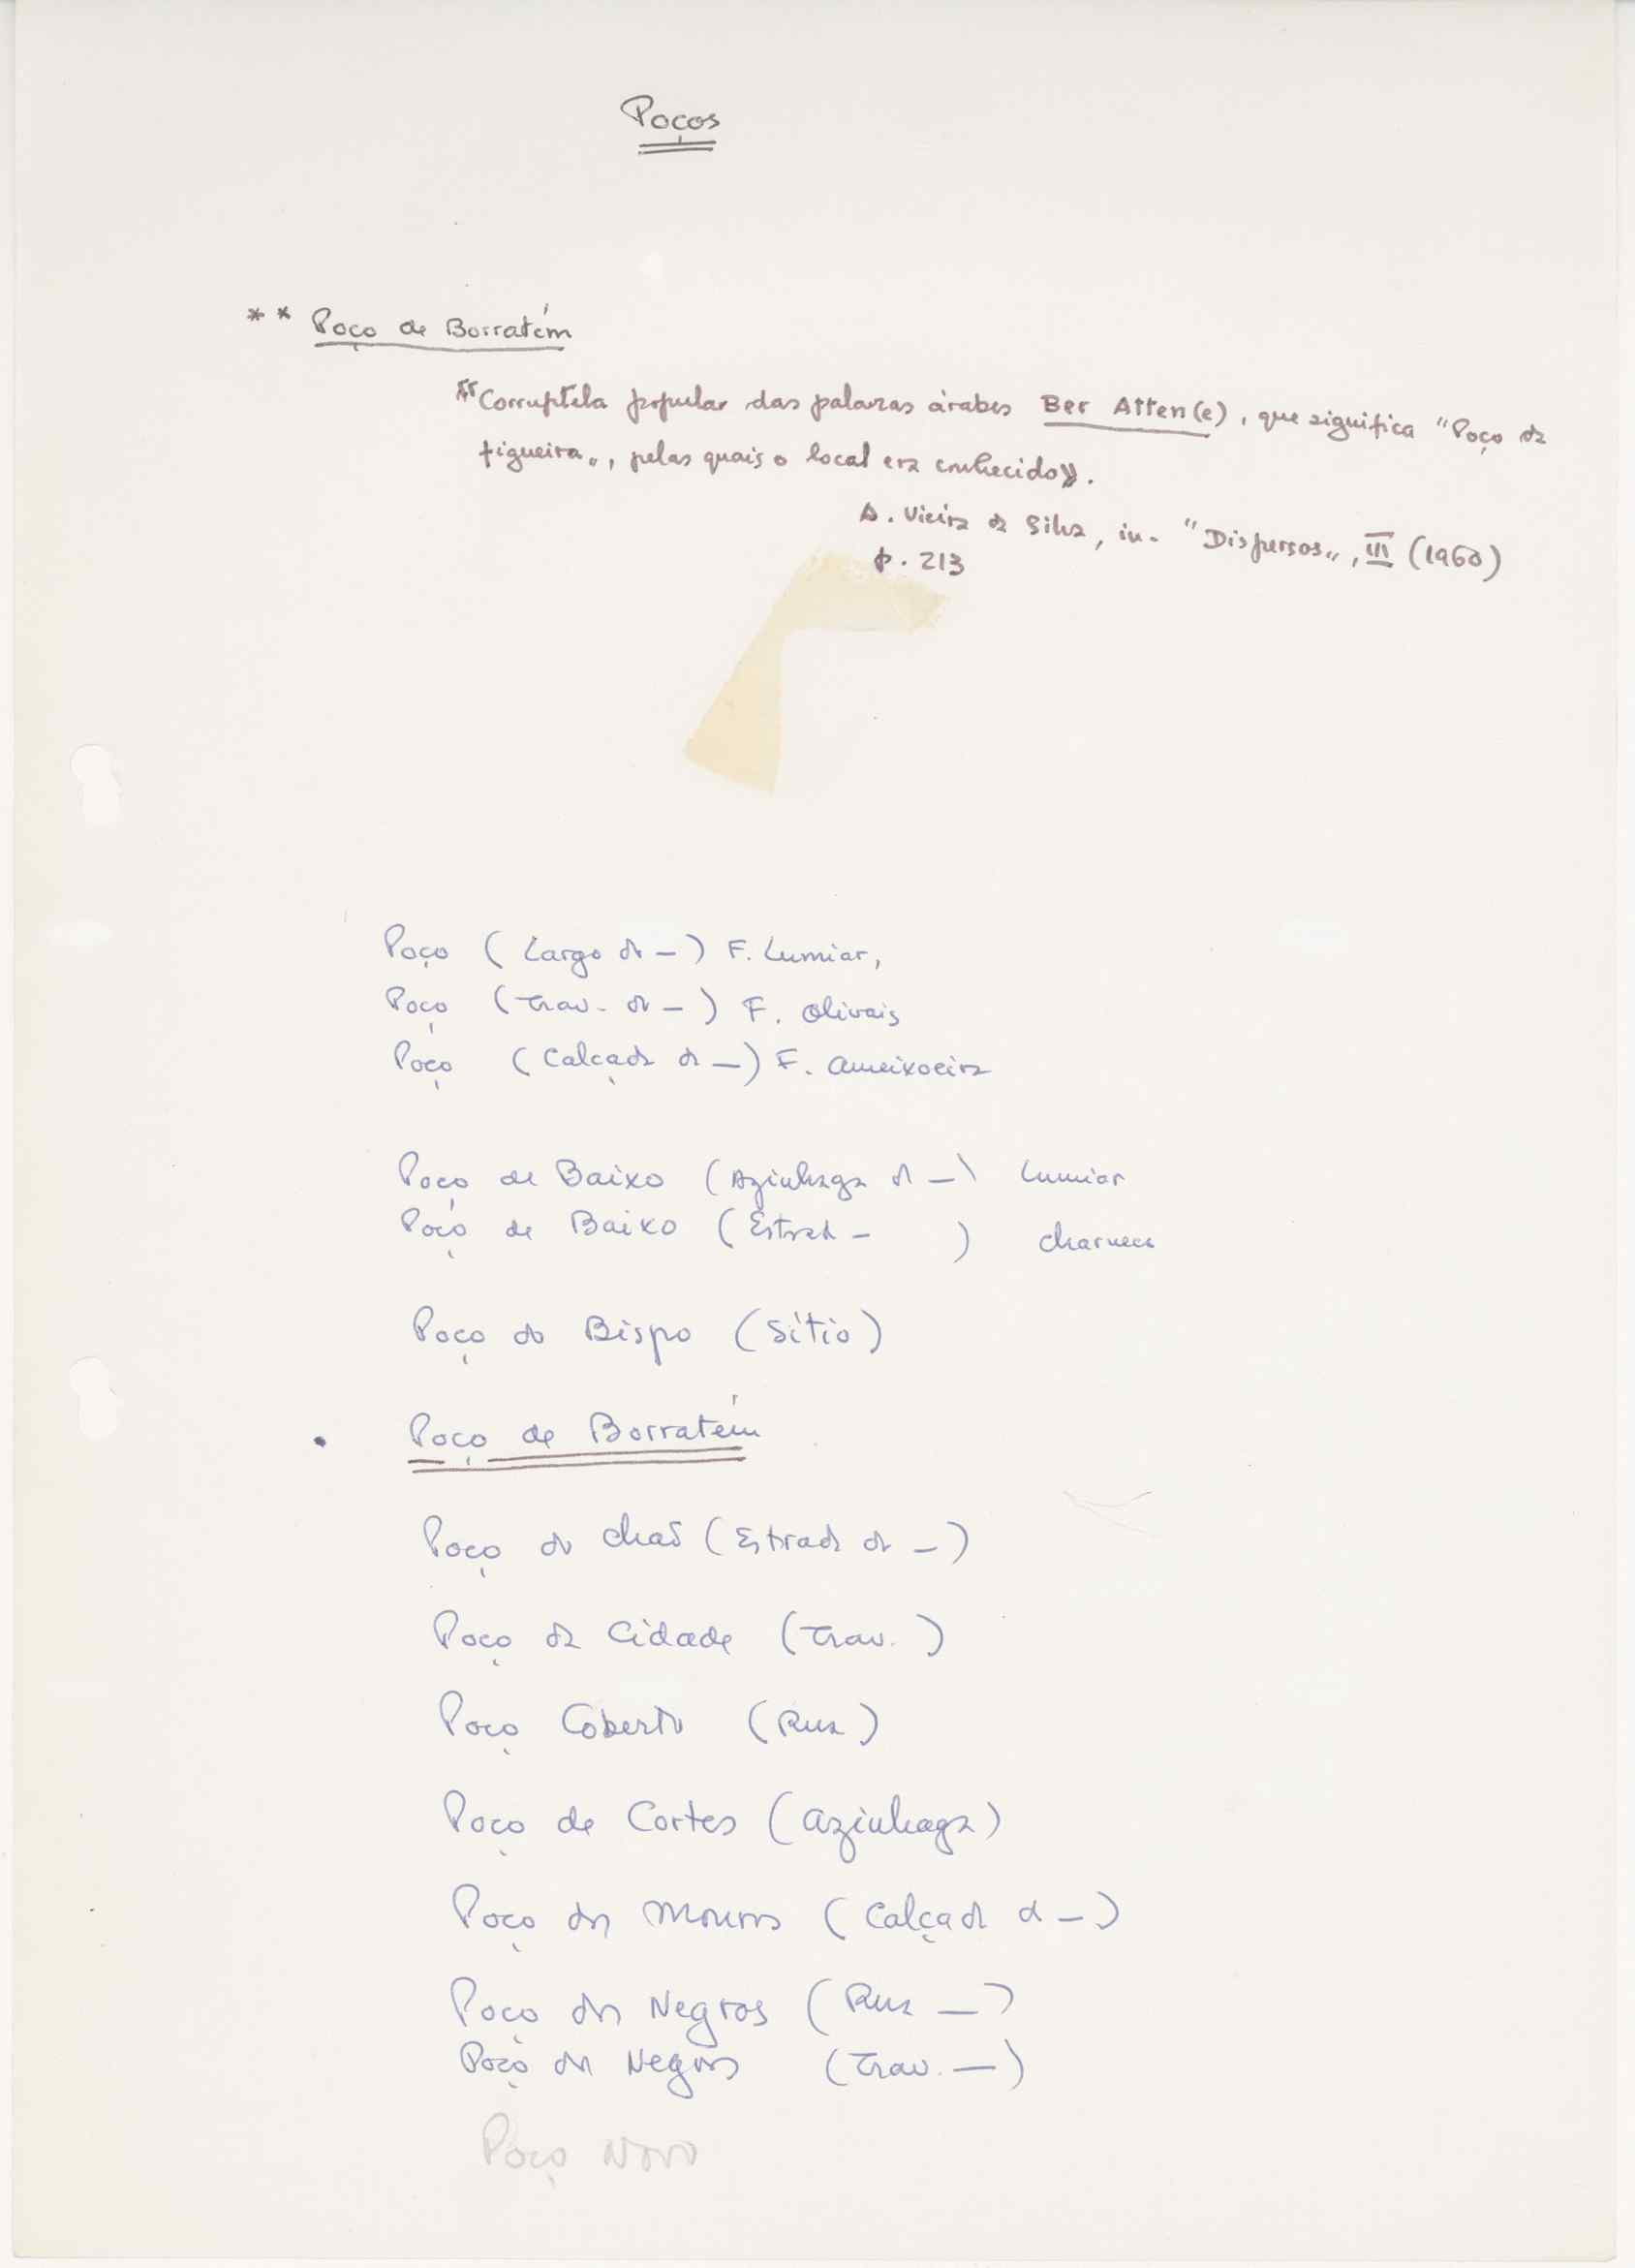 Poços
** Poço de Borratém
"Corruptela popular das palavras árabes Ber Atten(e), que significa "Poço da
figueira", pelas quais o local era conhecido».
A. Vieira da Silva, in. "Dispersos", III (1960)
p. 213
Poço (Largo do —) F. Lumiar,
Poço (Trav. do —) F. Olivais
Poço (Calçada do —) F. Ameixoeira
Poço de Baixo (Azinhaga do —) Lumiar
Poço de Baixo (Estrada — ) Charneca
Poço do Bispo (Sítio)
. Poço de Borratém
Poço do Chão (Estrada do —)
Poço da Cidade (Trav. )
Poço Coberto (Rua)
Poço de Cortes (Azinhaga)
Poço dos Mouros (Calçada do —)
Poço dos Negros (Rua —)
Poço dos Negros (Trav. —)
Poço Novo